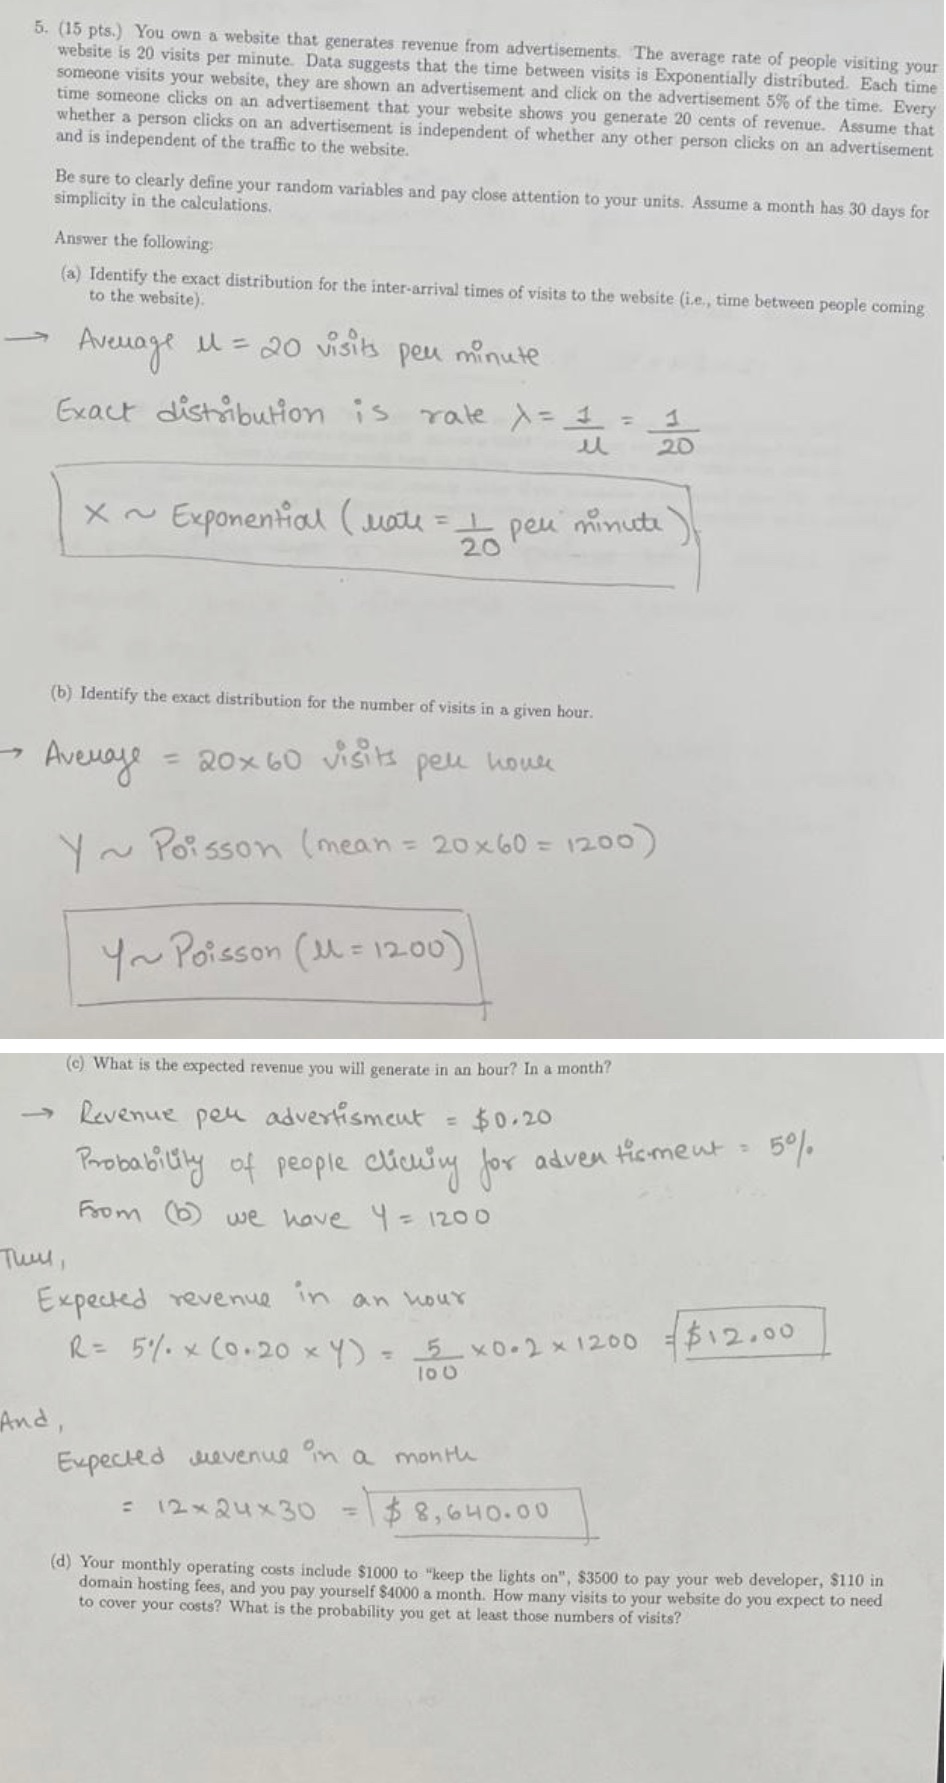 5. (15 pts.) You own a website that generates revenue from advertisements. The average rate of people visiting your
website is 20 visits per minute. Data suggests that the time between visits is Exponentially distributed. Each time
someone visits your website, they are shown an advertisement and click on the advertisement 5% of the time. Every
time someone clicks on an advertisement that your website shows you generate 20 cents of revenue. Assume that
whether a person clicks on an advertisement is independent of whether any other person clicks on an advertisement
and is independent of the traffic to the website.
Be sure to clearly define your random variables and pay close attention to your units. Assume a month has 30 days for
simplicity in the calculations.
Answer the following:
(a) Identify the exact distribution for the inter-arrival times of visits to the website (i.e., time between people coming
to the website).
→ Average μ = 20 visits per minute
Exact distribution is rate λ = 1/μ = 1/20
X ~ Exponential (rate = 1/20 per minute)
(b) Identify the exact distribution for the number of visits in a given hour.
→ Average = 20×60 visits per hour
Y ~ Poisson (mean = 20×60 = 1200)
Y ~ Poisson (μ = 1200)
(c) What is the expected revenue you will generate in an hour? In a month?
→ Revenue per advertisment = $0.20
Probability of people clicking for advertisment = 5%
From (b) we have Y = 1200
Thus,
Expected revenue in an hour
R = 5% × (0.20 × Y) = 5/100 × 0.2 × 1200 = $12.00
And,
Expected revenue in a month
= 12×24×30 = $8,640.00
(d) Your monthly operating costs include $1000 to "keep the lights on", $3500 to pay your web developer, $110 in
domain hosting fees, and you pay yourself $4000 a month. How many visits to your website do you expect to need
to cover your costs? What is the probability you get at least those numbers of visits?